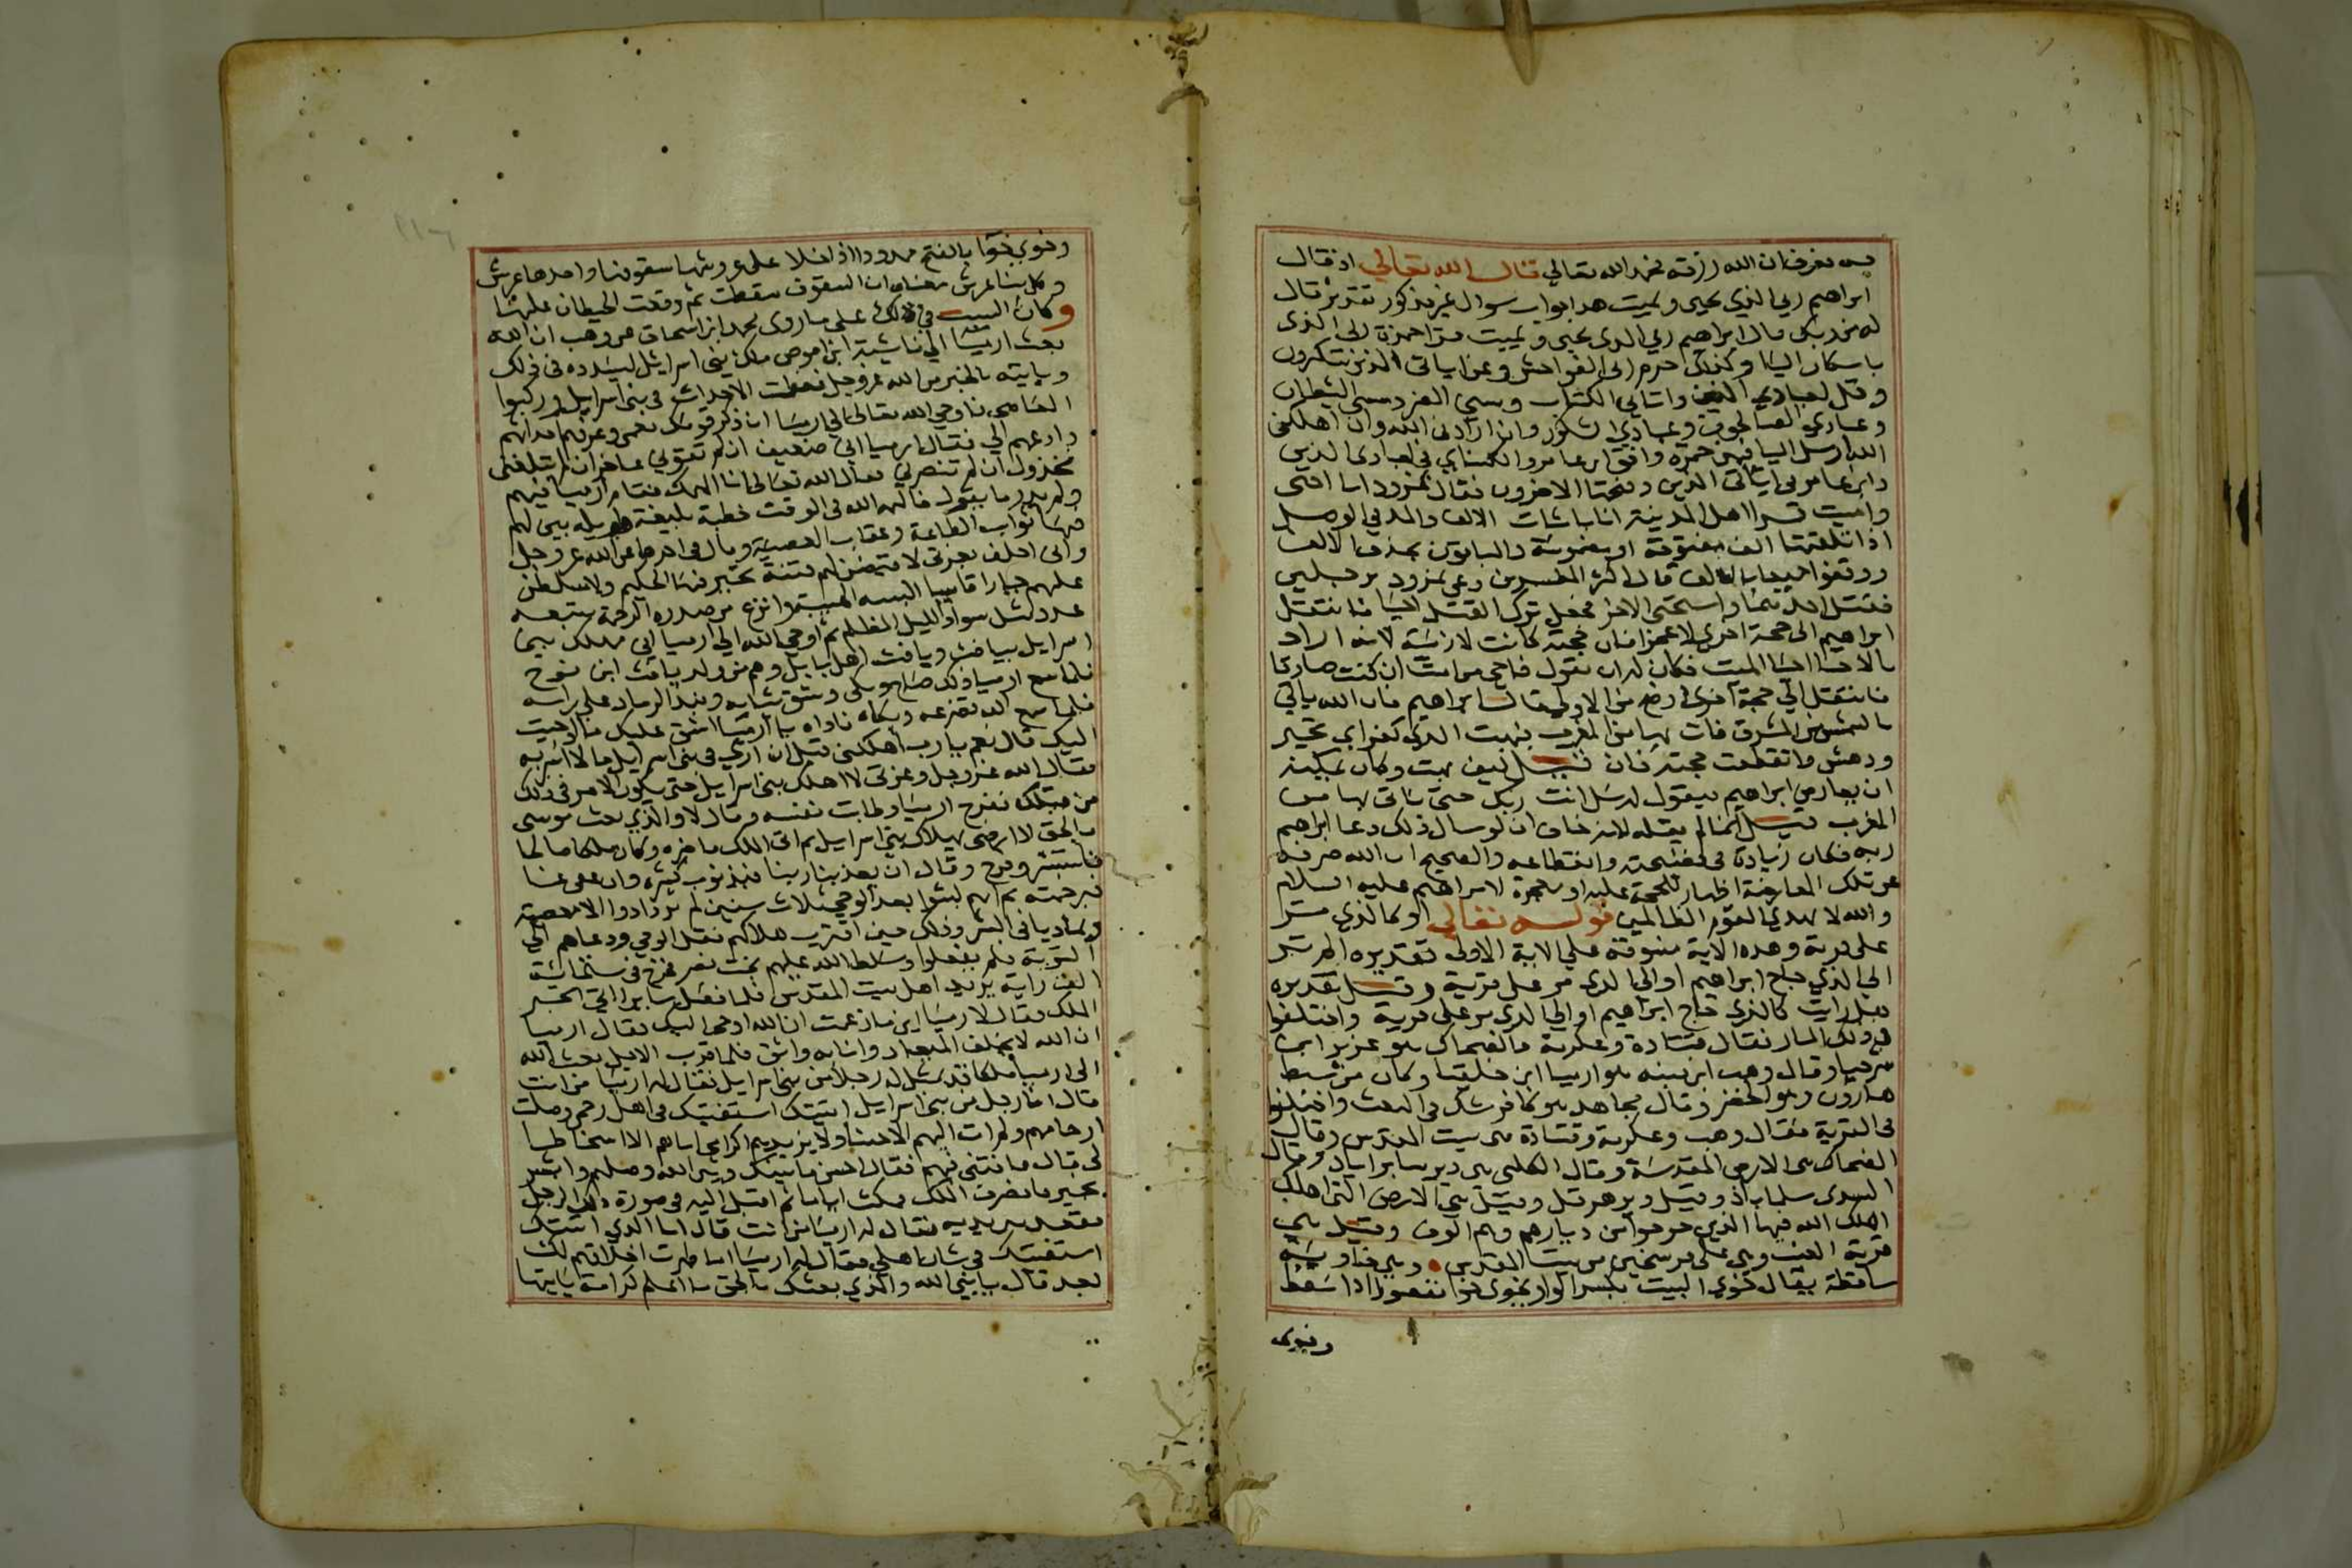 به نعرف ان الله رزقه محمد الله تعالى قال الله تعالى اذ قال
ابراهيم ربي الذي يحيي ويميت هذا جواب سوال غير مذكور تقديره قال
له من ربك قال ابراهيم ربي الذي يحيي ويميت قرا حمزة ربي الذي
باسكان اليا وكذلك حرم ربي الفواحش وعن اياتي الذين يتكبرون
وقل لعبادي الذين واتاني الكتاب ومسني الضر ومسني الشيطان
وعبادي الصالحون وعبادي الشكور وان ارادني الله وان اهلكني
الله ارسل اليا فيهن حمزة وافق ابن عامر والكسائي في لعبادي الذين
وابن عامر في اياتي الذين وفتحها الاخرون فقال نمرود انا احيي
واميت قرا اهل المدينة انا باثبات الالف والمد في الوصل
اذا تلقتها الف مفتوحة او مضمومة والباقون بحذف الالف
ووقفوا جميعا بالالف قال اكثر المفسرين دعى نمرود برجلين
فقتل احدهما واستحيى الاخر فجعل ترك القتل احيا فانتقل
ابراهيم الى حجة اخرى لا عجزا فان حجته كانت لازمة لانه اراد
بالاحيا احيا الميت فكان له ان يقول فاحي من امت ان كنت صادقا
فانتقل الى حجة اخرى اوضح من الاولى قال ابراهيم فان الله ياتي
بالشمس من المشرق فات بها من المغرب فبهت الذي كفر اي تحير
ودهش وانقطعت حجته فان قيل كيف بهت وكان يمكنه
ان يعارض ابراهيم فيقول له سل انت ربك حتى ياتي بها من
المغرب قيل انما لم يقله لانه خاف ان لو سال ذلك دعا ابراهيم
ربه فكان زيادة في فضيحته وانقطاعه والصحيح ان الله صرفه
عن تلك المعارضة اظهارا للحجة عليه او معجزة لابراهيم عليه السلام
والله لا يهدي القوم الظالمين قوله تعالى او كالذي مر
على قرية وهذه الاية منسوقة على الاية الاولى تقديره الم تر
الى الذي حاج ابراهيم او الى الذي مر على قرية وقيل تقديره
هل رايت كالذي حاج ابراهيم او الى الذي مر على قرية واختلفوا
في ذلك المار فقال قتادة وعكرمة والضحاك هو عزير ابن
شرحيا وقال وهب ابن منبه هو ارميا ابن خلقيا وكان من سبط
هارون وهو الخضر وقال مجاهد هو كافر شك في البعث واختلفوا
في القرية فقال وهب وعكرمة وقتادة هي بيت المقدس وقال
الضحاك هي الارض المقدسة وقال الكلبي هي دير سابراباد وقال
السدي سلماباذ وقيل دير هرقل وقيل هي الارض التي اهلك
اهلك الله فيها الذين خرجوا من ديارهم وهم الوف وقيل هي
قرية العنب وهي على فرسخين من بيت المقدس وهي خاوية
ساقطة يقال خوي البيت بكسر الواو يخوى خوا مقصورا اذا سقط
وخوى
وخوى خوا بالفتح ممدودا اذا خلا على عروشها سقوفها واحدها عرش
وكل بنا عرش معناه ان السقوف سقطت ثم وقعت الحيطان عليها
وكان السبب في ذلك على ما روى محمد ابن اسحاق عن وهب ان الله
بعث ارميا الى ناشية ابن اموص ملك بني اسرائيل ليسدده في ذلك
وياتيه بالخبر من الله عز وجل فعظمت الاحداث في بني اسرايل وركبوا
المعاصي فاوحى الله تعالى الى ارميا ان ذكر قومك نعمي وعرفهم احداثهم
وادعهم الي فقال ارميا اني ضعيف ان لم تقوني عاجز ان لم تبلغني
مخذول ان لم تنصرني فقال الله تعالى انا الهمك فقام ارميا فيهم
ولم يدر ما يقول فالهمه الله في الوقت خطبة بليغة طويلة بين لهم
فيها ثواب الطاعة وعقاب المعصية وقال في اخرها عن الله عز وجل
واني احلف بعزتي لاقيضن لهم فتنة يتحير فيها الحليم ولاسلطن
عليهم جبارا قاسيا البسه الهيبة وانزع من صدره الرحمة يتبعه
عدد مثل سواد الليل المظلم ثم اوحى الله الى ارميا اني مهلك بني
اسرايل بيافث ويافث اهل بابل وهم من ولد يافث ابن نوح
فلما سمع ارميا ذلك صاح وبكى وشق ثيابه ونبذ الرماد على راسه
فلما سمع الله تضرعه وبكاه ناداه يا ارميا اشق عليك ما اوحيت
اليك قال نعم يا رب اهلكني قبل ان ارى في بني اسرايل ما لا اسر به
فقال الله عز وجل وعزتي لا اهلك بني اسرايل حتى يكون الامر في ذلك
من قبلك ففرح ارميا وطابت نفسه وقال لا والذي بعث موسى
بالحق لا ارضى بهلاك بني اسرايل ثم اتى الملك فاخبره وكان ملكا صالحا
فاستبشر وفرح وقال ان يعذبنا ربنا فبذنوب كثيرة وان عفى عنا
فبرحمته ثم انهم لبثوا بعد الوحي ثلاث سنين لم يزدادوا الا معصية
وتماديا في الشر وذلك حين اقترب هلاكهم فقل الوحي ودعاهم الى
التوبة فلم يفعلوا وسلط الله عليهم بخت نصر فخرج في ستمائة
الف راية يريد اهل بيت المقدس فلما فصل سايرا اتى الخبر
الملك فقال لارميا اين ما زعمت ان الله اوحى اليك فقال ارميا
ان الله لا يخلف الميعاد وانا به واثق فلما قرب الاجل بعث الله
الى ارميا ملكا قد تمثل له رجلا من بني اسرايل فقال له ارميا من انت
قال انا رجل من بني اسرايل اتيتك استفتيك في اهل رحمي وصلت
ارحامهم ولم ات اليهم الا حسنا ولا يزيدهم اكرامي اياهم الا اسخاطا
لي قال فافتني فيهم فقال احسن ما بينك وبين الله وصلهم وابشر
بخير فانصرف الملك فمكث اياما ثم اقبل اليه في صورة ذلك الرجل
فقعد بين يديه فقال له ارميا من انت قال انا الذي اتيتك
استفتيك في شان اهلي فقال له ارميا اما طهرت اخلاقهم لك
بعد قال يا نبي الله والذي بعثك بالحق ما اعلم كرامة ياتيها